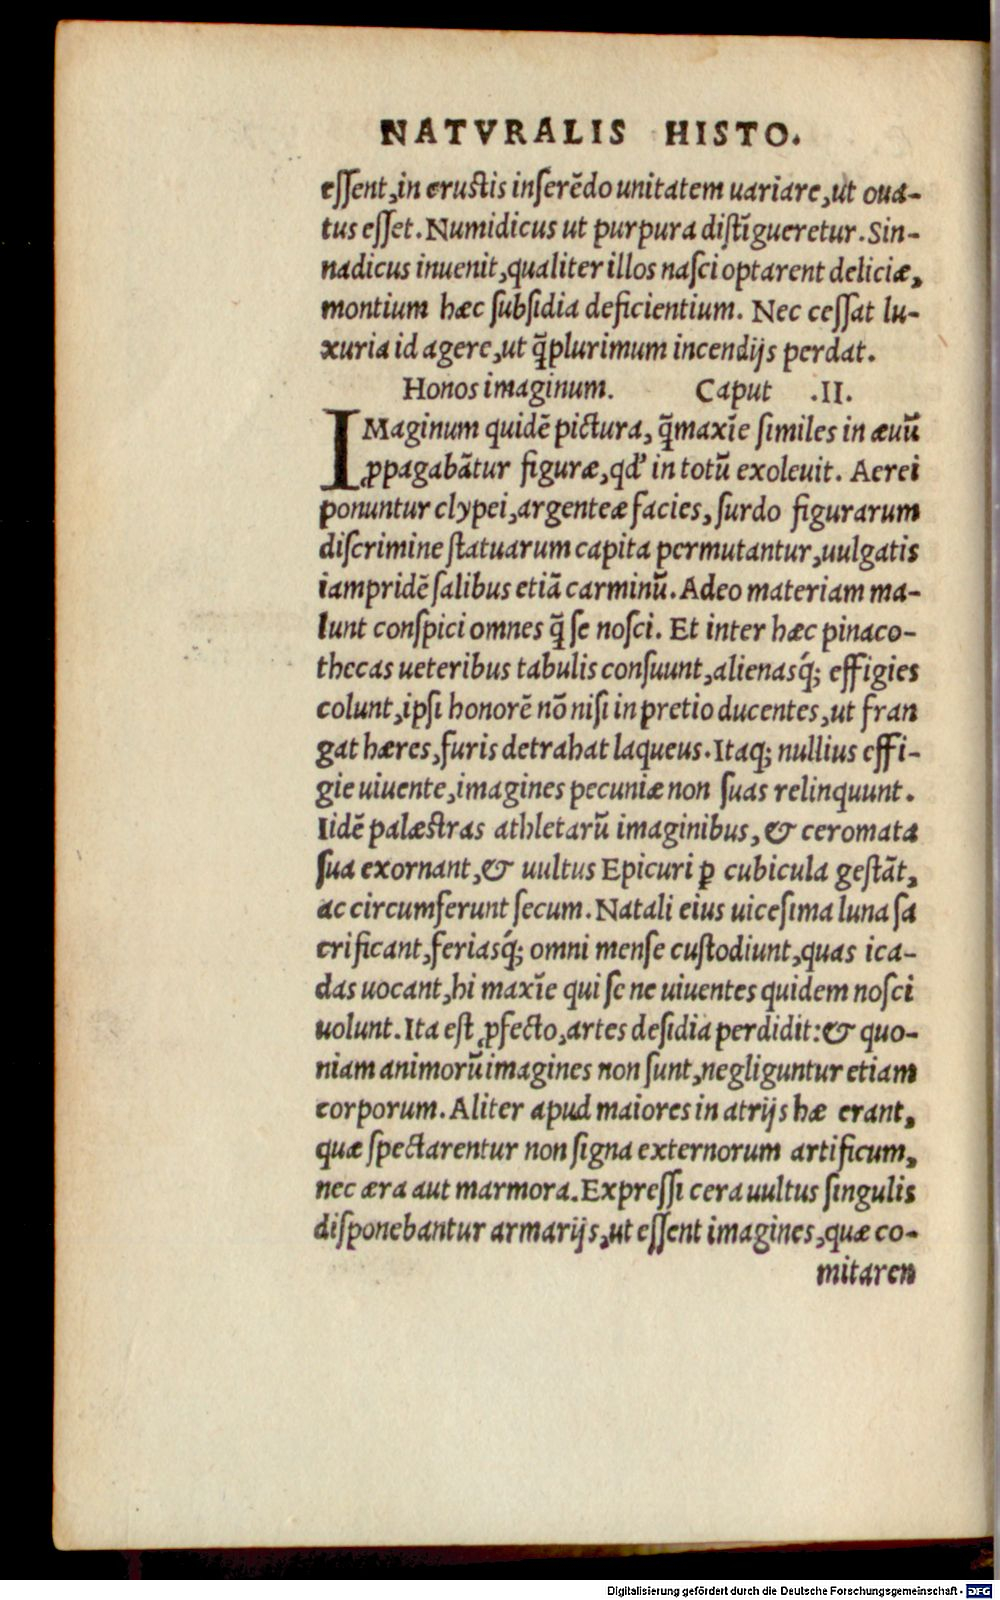 NATVRALIS HISTO.
eſſent, in cruſtis inſerēdo unitatem uariare, ut oua-
tus eſſet. Numidicus ut purpura diſtīgueretur. Sin-
nadicus inuenit, qualiter illos naſci optarent deliciæ,
montium hæc ſubſidia deficientium. Nec ceſſat lu-
xuria id agere, ut q̃plurimum incendijs perdat.
Honos imaginum. Caput .II.
IMaginum quidē pictura, q̃maxīe ſimiles in æuū
ꝓpagabātur figuræ, qđ in totū exoleuit. Aerei
ponuntur clypei, argenteæ facies, ſurdo figurarum
diſcrimine ſtatuarum capita permutantur, uulgatis
iampridē ſalibus etiā carminū. Adeo materiam ma-
lunt conſpici omnes q̃ ſe noſci. Et inter hæc pinaco-
thecas ueteribus tabulis conſuunt, alienasq́; effigies
colunt, ipſi honorē nō niſi in pretio ducentes, ut fran
gat hæres, furis detrahat laqueus. Itaq; nullius effi-
gie uiuente, imagines pecuniæ non ſuas relinquunt.
Iidē palæſtras athletarū imaginibus, & ceromata
ſua exornant, & uultus Epicuri ꝑ cubicula geſtāt,
ac circumferunt ſecum. Natali eius uiceſima luna ſa
crificant, feriasq́; omni menſe cuſtodiunt, quas ica-
das uocant, hi maxīe qui ſe ne uiuentes quidem noſci
uolunt. Ita eſt ꝓfecto, artes deſidia perdidit: & quo-
niam animorū imagines non ſunt, negliguntur etiam
corporum. Aliter apud maiores in atrijs hæ erant,
quæ ſpectarentur non ſigna externorum artificum,
nec æra aut marmora. Expreſſi cera uultus ſingulis
diſponebantur armarijs, ut eſſent imagines, quæ co-
mitaren
Digitalisierung gefördert durch die Deutsche Forschungsgemeinschaft - DFG